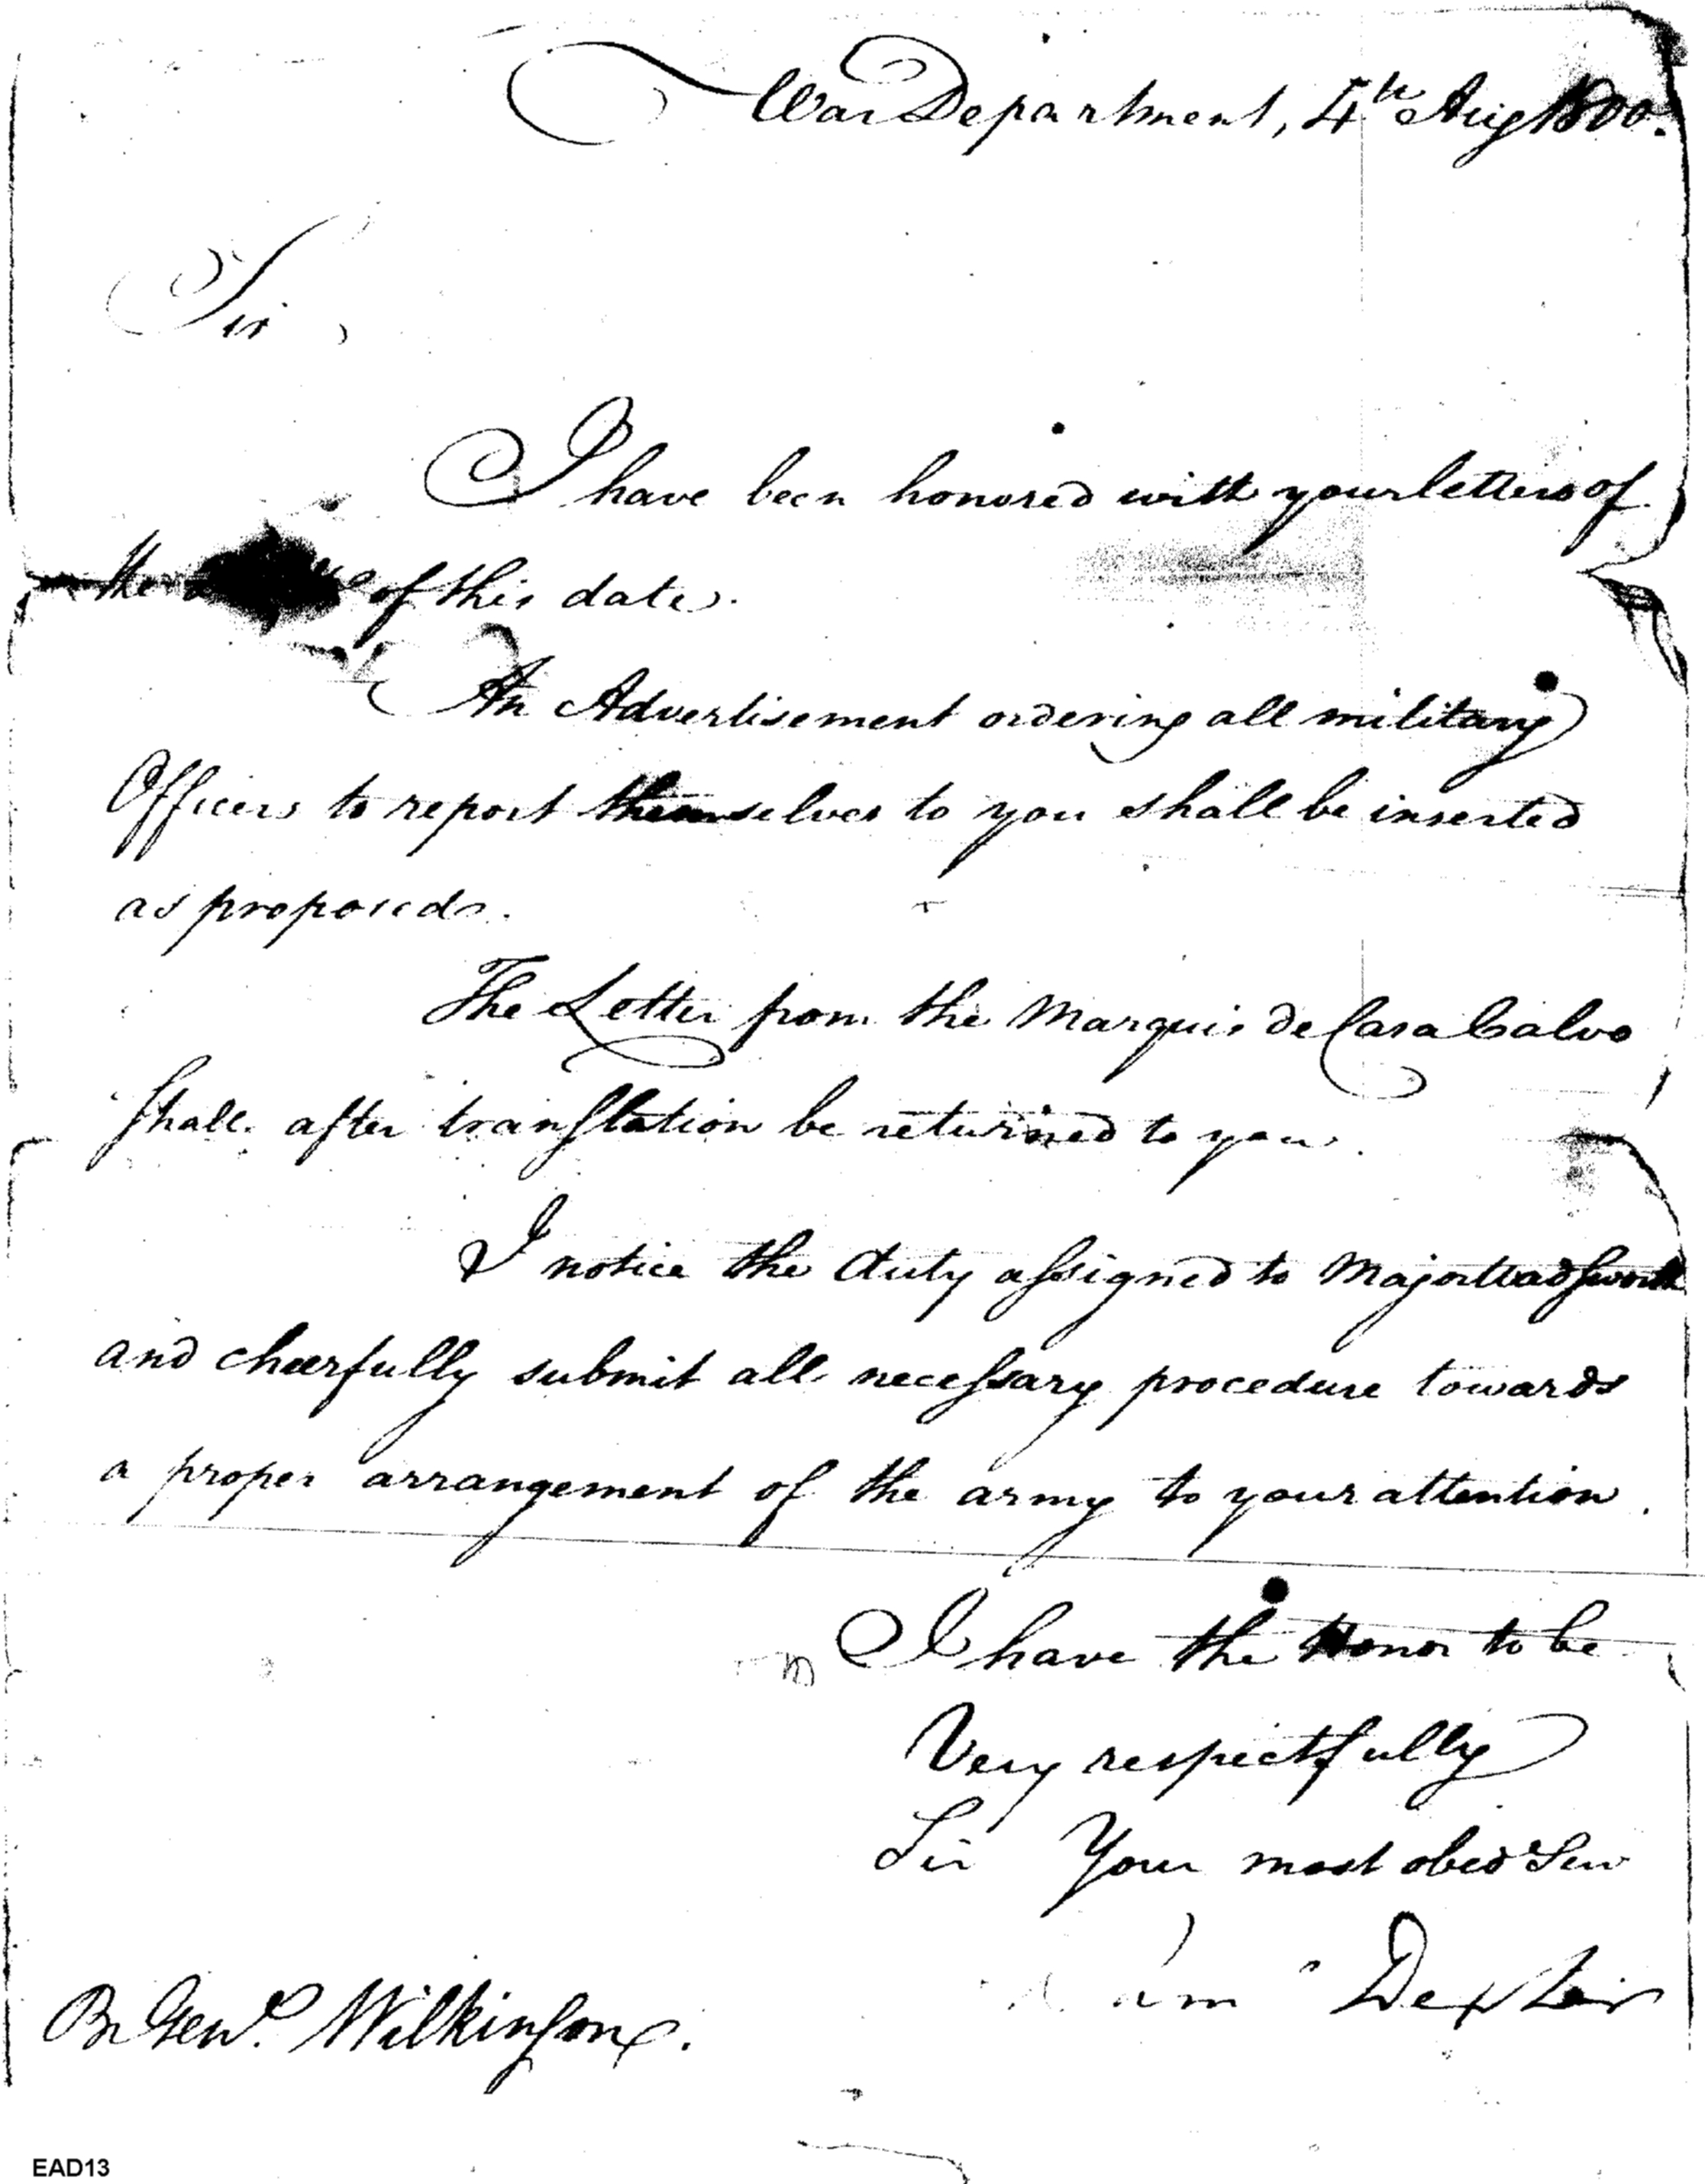 War Department, 4th Aug 1800.
Sir,
I have been honored with your letters of
the of this date.
An Advertisement ordering all military
Officers to report themselves to you shall be inserted
as proposed.
The Letter from the Marquis de Casa Calvo
shall after translation be returned to you.
I notice the duty assigned to Major Wadsworth
and cheerfully submit all necessary procedure towards
a proper arrangement of the army to your attention.
I have the Honor to be
Very respectfully
Sir Your most obed Serv
Dexter
Br Genl. Wilkinson.
EAD13